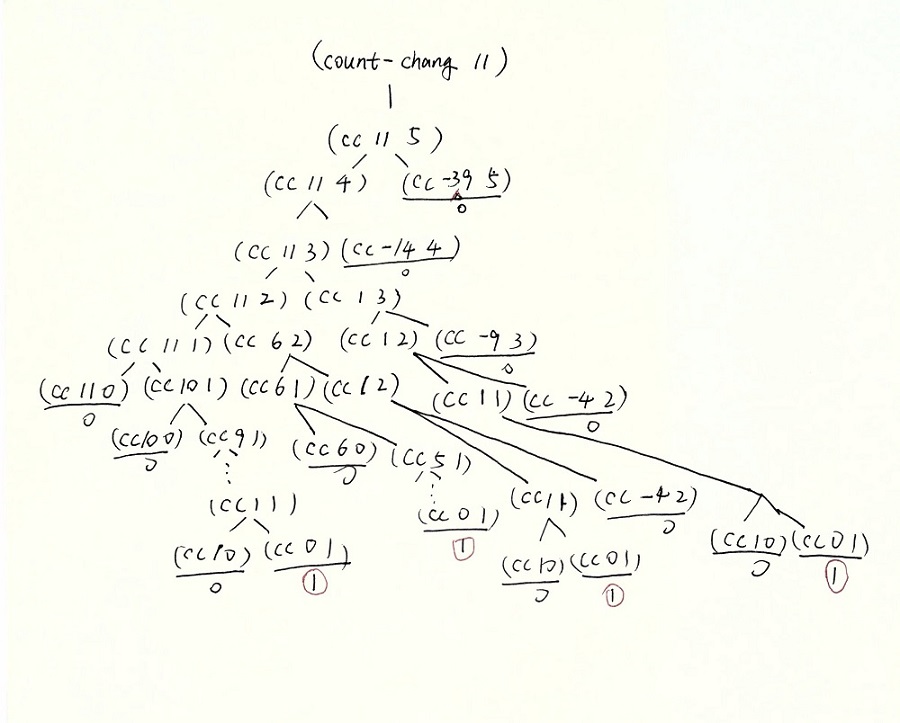 (count-chang 11)
(cc 11 5)
(cc 11 4) (cc -39 5)
0
(cc 11 3) (cc -14 4)
0
(cc 11 2) (cc 1 3)
(cc 11 1) (cc 6 2) (cc 1 2) (cc -9 3)
0
(cc 11 0) (cc 10 1) (cc 6 1) (cc 1 2) (cc 1 1) (cc -4 2)
0 0
(cc 10 0) (cc 9 1) (cc 6 0) (cc 5 1)
0 0
(cc 1 1) (cc 0 1) (cc 1 1) (cc -4 2)
1 0
(cc 1 0) (cc 0 1) (cc 1 0) (cc 0 1) (cc 1 0) (cc 0 1)
0 1 0 1 0 1